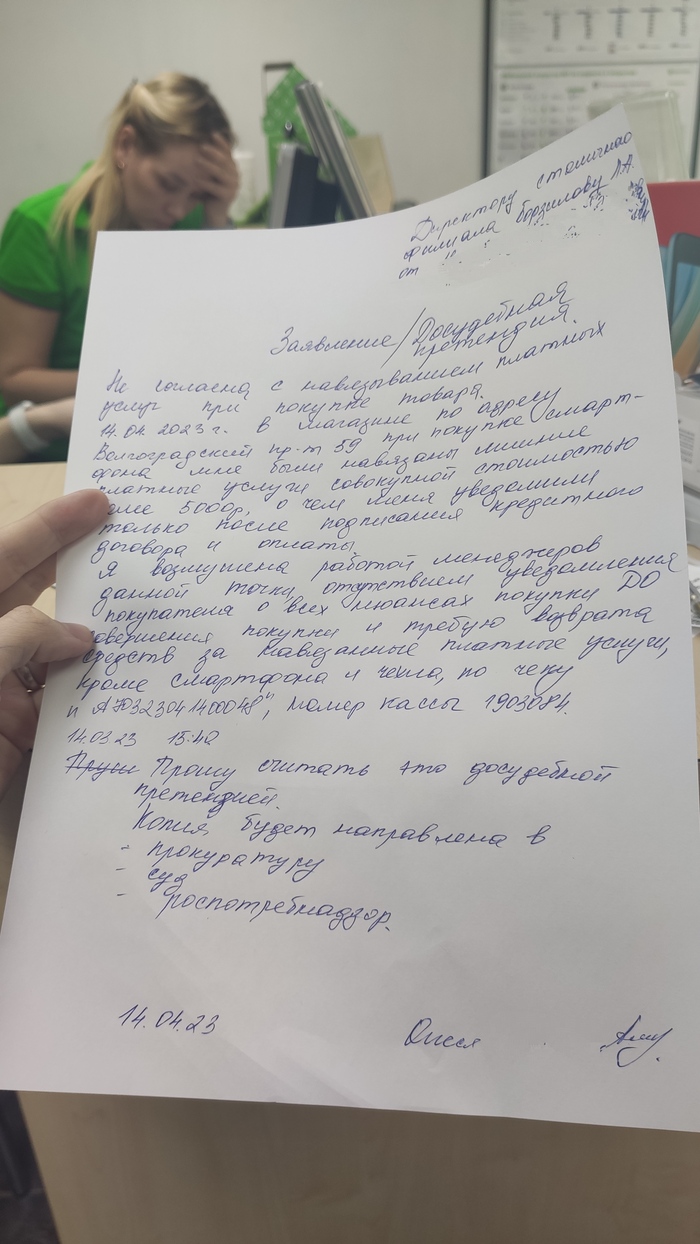 Директору столичного
филиала Борзилову А.А.
от
Заявление/Досудебная
претендия.
Не согласна с навязыванием платных
услуг при покупке товара.
14.04.2023г. в магазине по адресу
Волгоградский пр-т 59 при покупке смарт-
фона мне были навязаны лишние
платные услуги совокупной стоимостью
более 5000р, о чем меня уведомили
только после подписания кредитного
договора и оплаты
Я возмущена работой менеджеров
данной точки, отсутствием уведомления
покупателя о всех нюансах покупки ДО
совершения покупки и требую возврата
средств за навязанные платные услуги,
кроме смартфона и чехла, по чеку
номер кассы 1903084.
14.03.23 15:42
Прошу Прошу считать это досудебной
претендией.
Копия будет направлена в
- прокуратуру
- суд
- роспотребнадзор.
14.04.23 Олеся